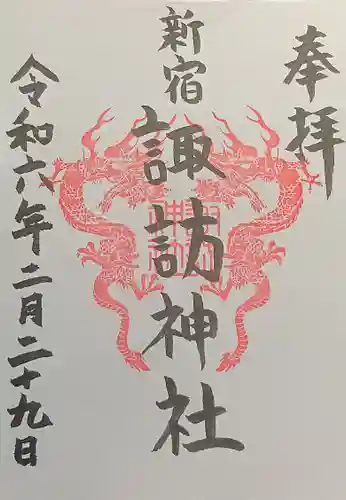 奉拝
新宿
諏訪神社
令和六年二月二十九日